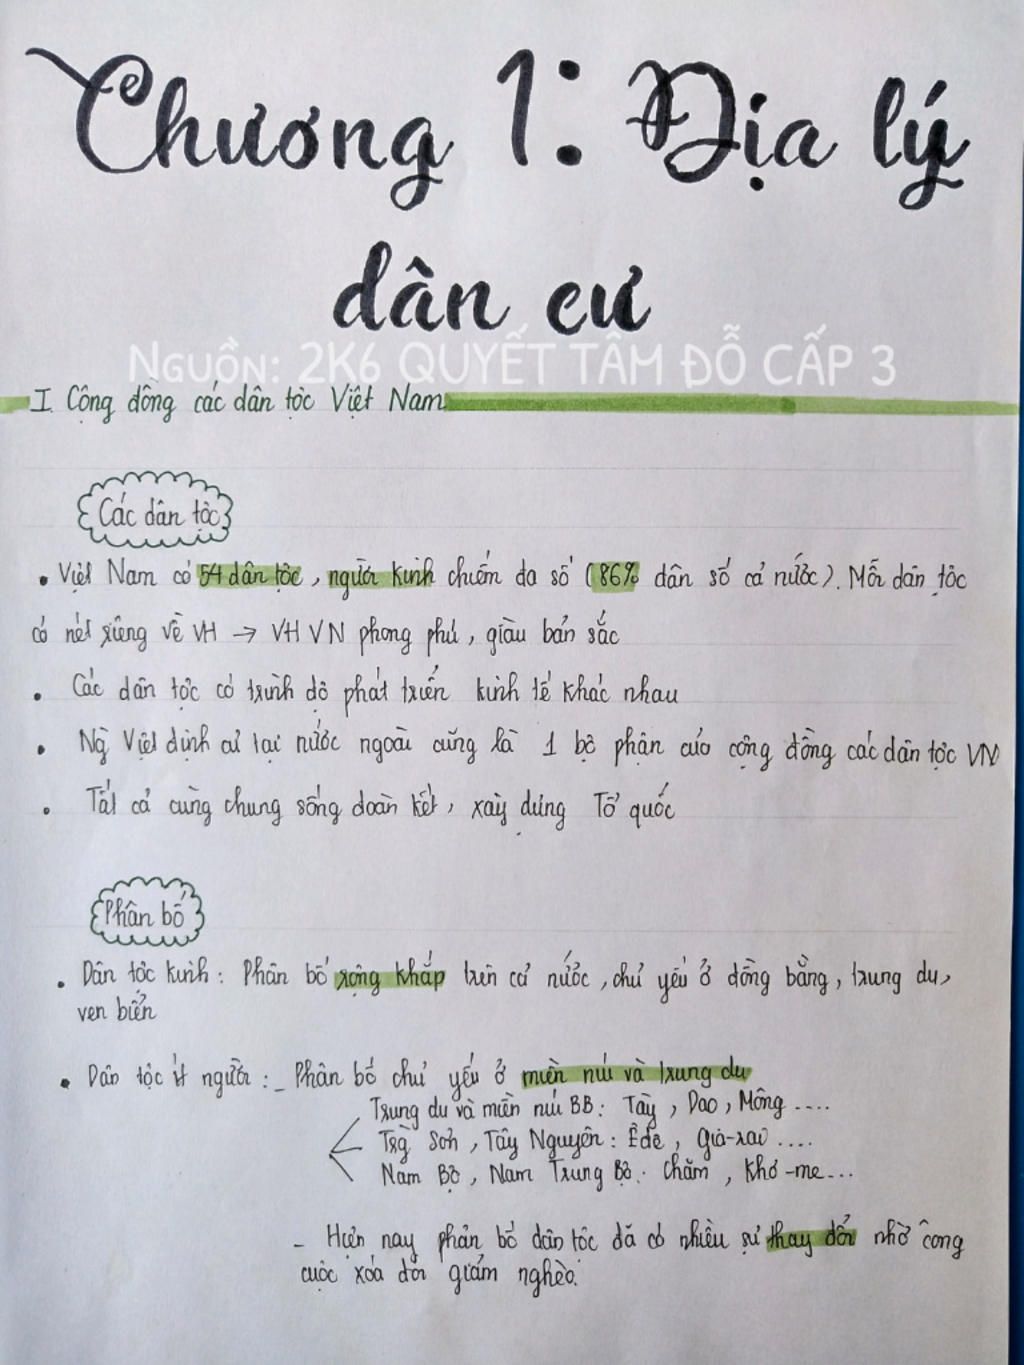 Chương 1: Địa lý
dân cư
NGUỒN: 2K6 QUYẾT TÂM ĐỖ CẤP 3
I. Cộng đồng các dân tộc Việt Nam
Các dân tộc
• Việt Nam có 54 dân tộc, người kinh chiếm đa số (86% dân số cả nước). Mỗi dân tộc
có nét riêng về VH → VH VN phong phú, giàu bản sắc
• Các dân tộc có trình độ phát triển kinh tế khác nhau
• Ng` Việt định cư tại nước ngoài cũng là 1 bộ phận của cộng đồng các dân tộc VN
• Tất cả cùng chung sống đoàn kết, xây dựng Tổ quốc
Phân bố
• Dân tộc kinh: Phân bố rộng khắp trên cả nước, chủ yếu ở đồng bằng, trung du,
ven biển
• Dân tộc ít người: - Phân bố chủ yếu ở miền núi và trung du
Trung du và miền núi BB: Tày, Dao, Mông ....
Trg` Sơn, Tây Nguyên: Êđê, Gia-rai ....
Nam Bộ, Nam Trung Bộ: Chăm, Khơ-me...
- Hiện nay phân bố dân tộc đã có nhiều sự thay đổi nhờ công
cuộc xóa đói giảm nghèo.